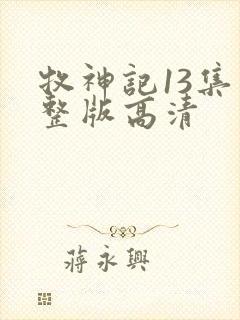 牧神記13集
整版高清
蔣永興